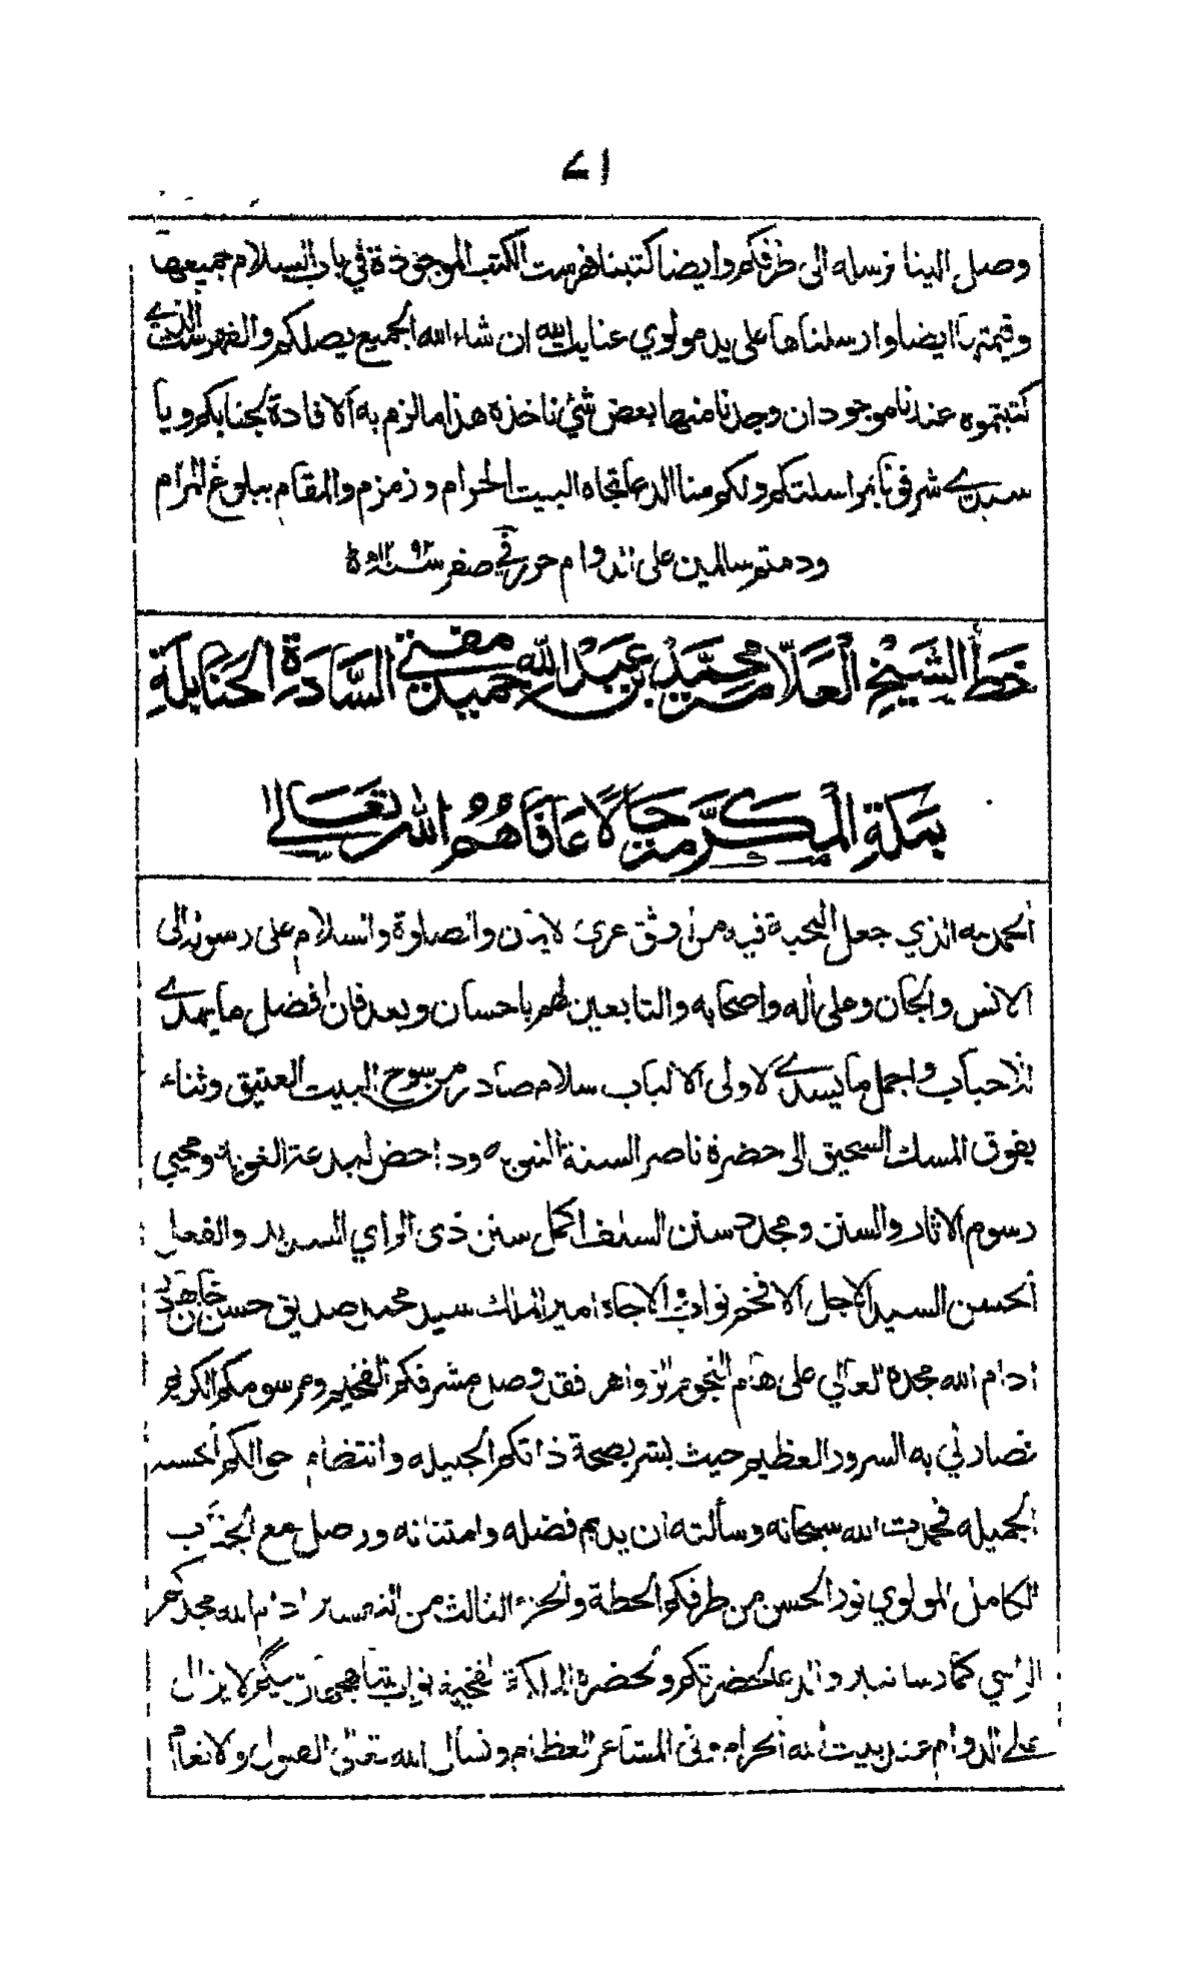 ٧١
وصل الينا نرسله الى طرفكم وايضا كتبنا فهرست الكتب الموجودة في باب السلام جميعها
وقيمتها ايضا وارسلناها على يد مولوي عنايت الله ان شاء الله الجميع يصلكم والفهرست الذي
كتبتموه عندنا موجود ان وجدنا منها بعض شئ ناخذه هذا ما لزم به الافادة لجنابكم ويا
سيدي شرفونا بمراسلتكم ولكم منا الدعا تجاه البيت الحرام وزمزم والمقام ببلوغ المرام
ودمتم سالمين على الدوام حرر في صفر سنة ١٢٩٢ه
خط الشيخ العلامة محمد بن عبد الله بن حميد مفتي السادة الحنابلة
بمكة المكرمة حالا عافاهم الله تعالى
الحمد لله الذي جعل المحبة فيه من اوثق عرى الايمان والصلوة والسلام على رسوله الى
الانس والجان وعلى اله واصحابه والتابعين لهم باحسان وبعد فان افضل ما يهدى
للاحباب واجمل ما يسدى لاولى الالباب سلام صادر من سوح البيت العتيق وثناء
يفوق المسك السحيق الى حضرة ناصر السنة النبويه وداحض البدعة الغويه ومحيي
رسوم الاثار والسنن ومجدد سنن السلف اكمل سنن ذى الراي السديد والفعل
الحسن السيد الاجل الافخم نواب والا جاه امير الملك سيد محمد صديق حسن خان بهادر
ادام الله مجده العالي على هام النجوم الزواهر فقد وصل مشرفكم الفخيم ومرسومكم الكريم
فصار لي به السرور العظيم حيث بشر بصحة ذاتكم الجليله وانتظام احوالكم الحسنه
الجميله فحمدت الله سبحانه وسألته ان يديم فضله وامتنانه ووصل مع الجناب
الكامل المولوي نور الحسن من طرفكم الحطة والجزء الثالث من التفسير ادام الله مجدكم
الراسي كثا والدعا لحضرتكم ولحضرة الملكة الفخيمة نواب شاهجهان بيگم لا يزال
على الدوام عند بيت الله الحرام وفى المشاعر العظام ونسأل الله تعالى القبول والانعام